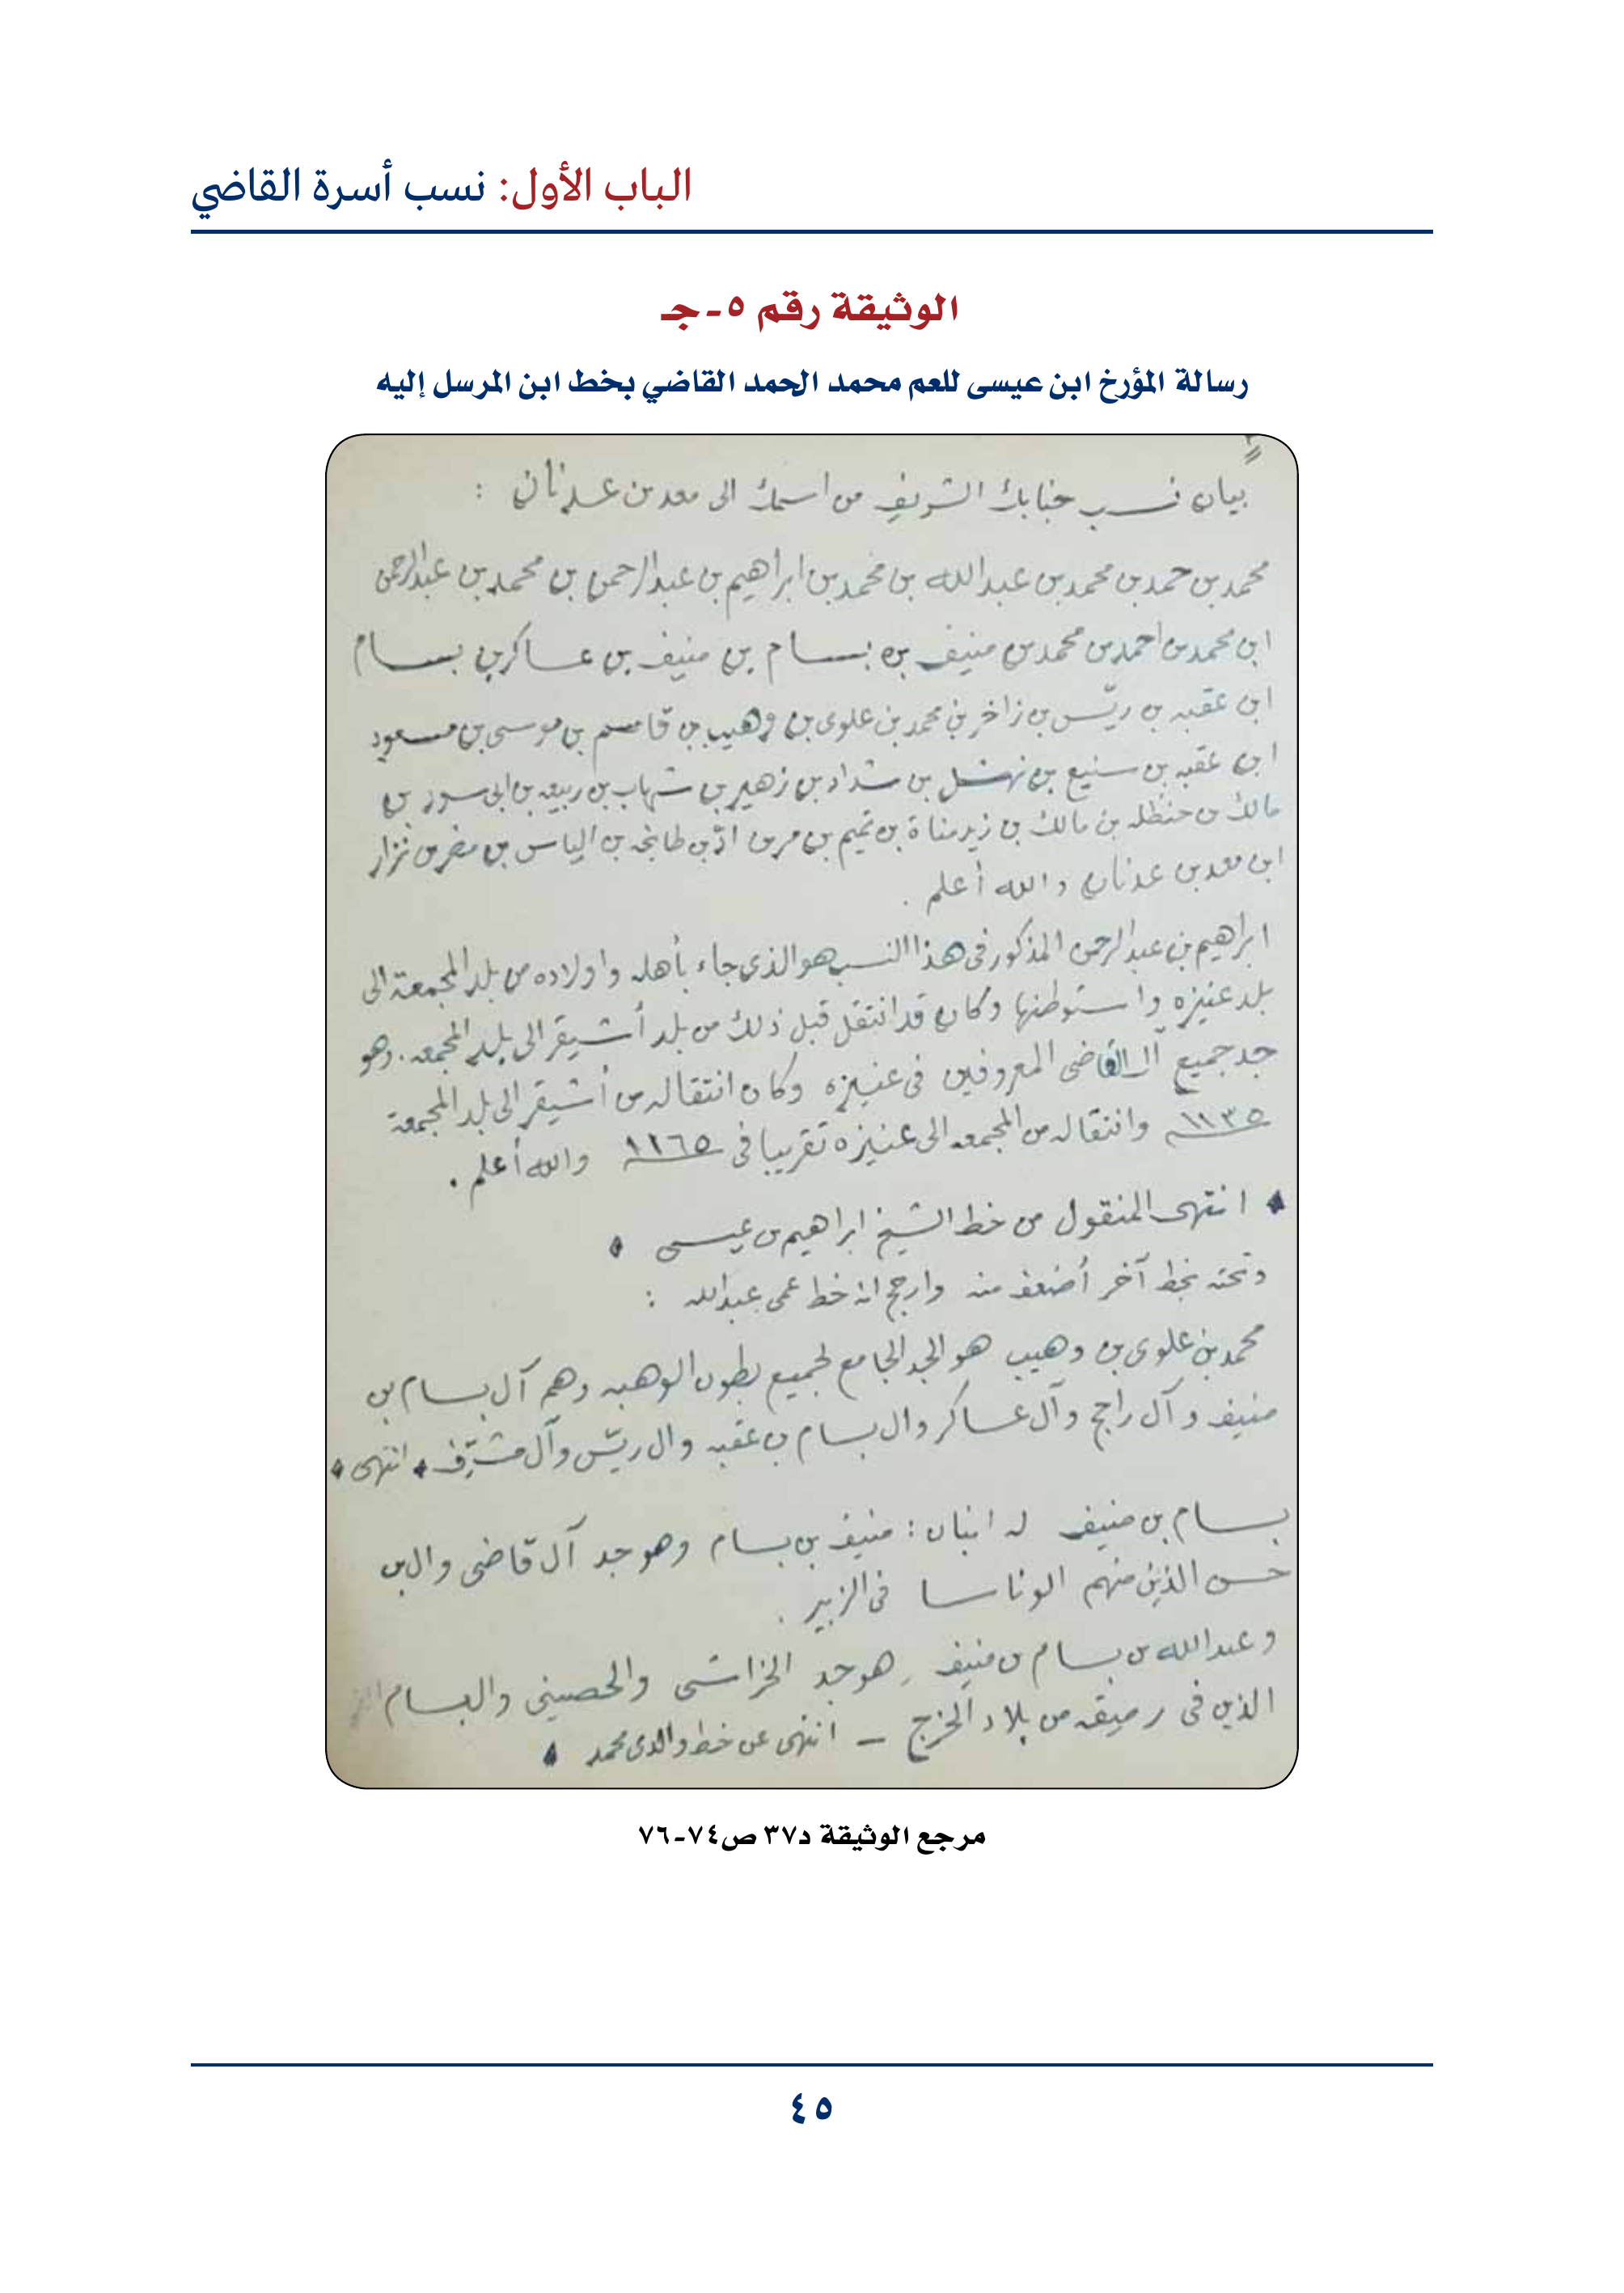 الباب الأول: نسب أسرة القاضي
الوثيقة رقم ٥-جـ
رسالة المؤرخ ابن عيسى للعم محمد الحمد القاضي بخط ابن المرسل إليه
بيان نسب جنابك الشريف من اسمك الى معد بن عدنان :
محمد بن حمد بن محمد بن عبدالله بن محمد بن ابراهيم بن عبدالرحمن بن محمد بن عبدالرحمن
ابن محمد بن احمد بن محمد بن منيف بن بسام بن منيف بن عساكر بن بسام
ابن عقبه بن ريّس بن زاخر بن محمد بن علوى بن وهيب بن قاسم بن موسى بن مسعود
ابن عقبه بن سنيع بن نهشل بن شداد بن زهير بن شهاب بن ربيعه بن ابى سود بن
مالك بن حنظله بن مالك بن زيد مناة بن تميم بن مر بن ادّ بن طابخه بن الياس بن مضر بن نزار
ابن معد بن عدنان والله أعلم .
ابراهيم بن عبدالرحمن المذكور فى هذا النسب هو الذى جاء بأهله واولاده من بلد المجمعة الى
بلد عنيزه واستوطنها وكان قد انتقل قبل ذلك من بلد أشيقر الى بلد المجمعه . وهو
جد جميع آل القاضى المعروفين فى عنيزه وكان انتقاله من أشيقر الى بلد المجمعة
١١٣٥ وانتقاله من المجمعه الى عنيزه تقريبا فى ١١٦٥ والله أعلم .
انتهى المنقول من خط الشيخ ابراهيم بن عيسى
وتحته بخط آخر أضعف منه وارجح انه خط عمى عبدالله :
محمد بن علوى بن وهيب هو الجد الجامع لجميع بطون الوهبه وهم آل بسام بن
منيف وآل راجح وآل عساكر وال بسام بن عقبه وال ريّس وآل مشرّف انتهى
بسام بن منيف له ابنان : منيف بن بسام وهو جد آل قاضى وال بن
حسن الذين منهم الوناسا فى الزبير .
وعبدالله بن بسام بن منيف هو جد الخراشى والحصينى والبسام
الذين فى رميقه من بلاد الخرج – انتهى عن خط والدى محمد
مرجع الوثيقة د٣٧ ص٧٤-٧٦
٤٥